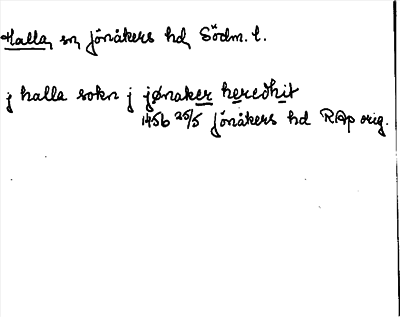 Halla, sn, Jönåkers hd, Södm. l.
j halla sokn j jønaker heredhit
1456 25/5 Jönåkers hd RAp orig.